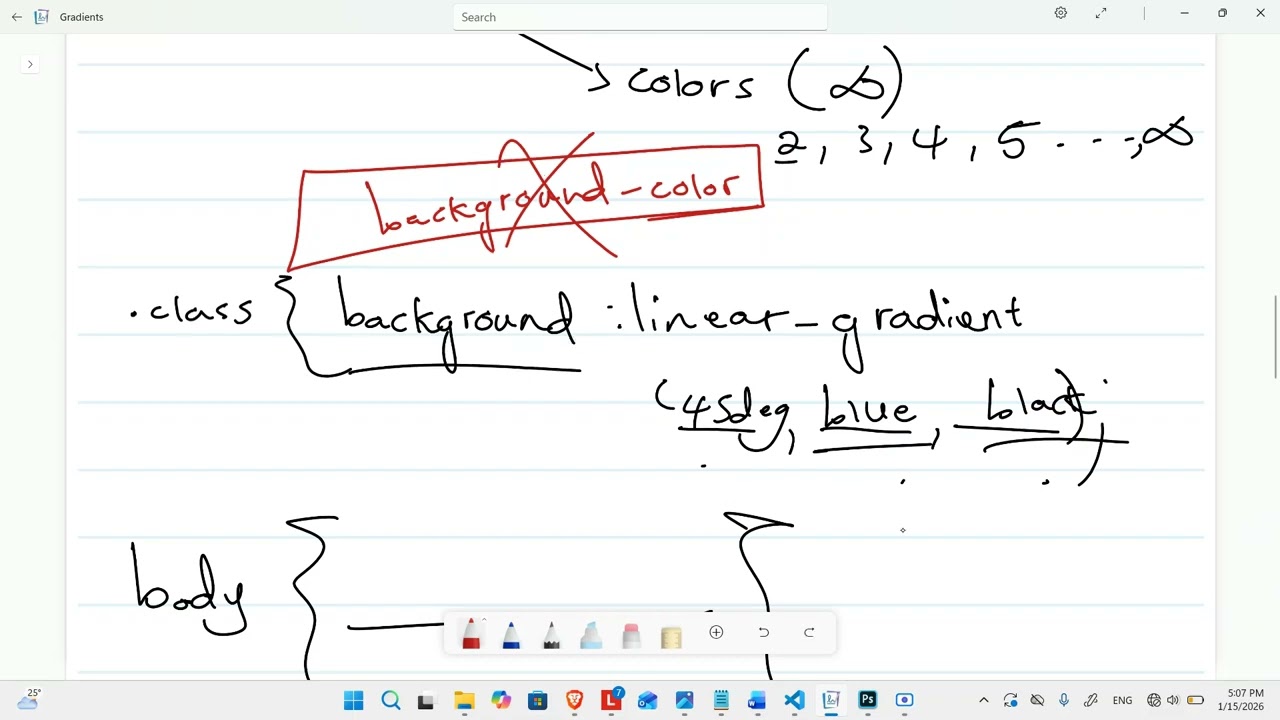 Gradients
Search
colors (∞)
2, 3, 4, 5 . . ., ∞
background-color
.class { background :linear-gradient
(45deg, blue, black)
body {
25°
7
ENG
5:07 PM
1/15/2026